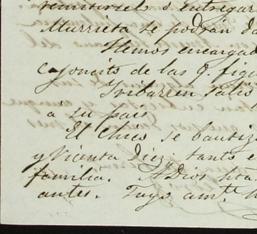 remitirsele ó entregar
Murrieta se podrán da
Hemos encargad
cajoncito de las q. figu
Iribarren salió
á su pais
El Chico se bautizó
y Vicenta Diez, tanto e
familia. Adios hta
antes. Tuyo am.te